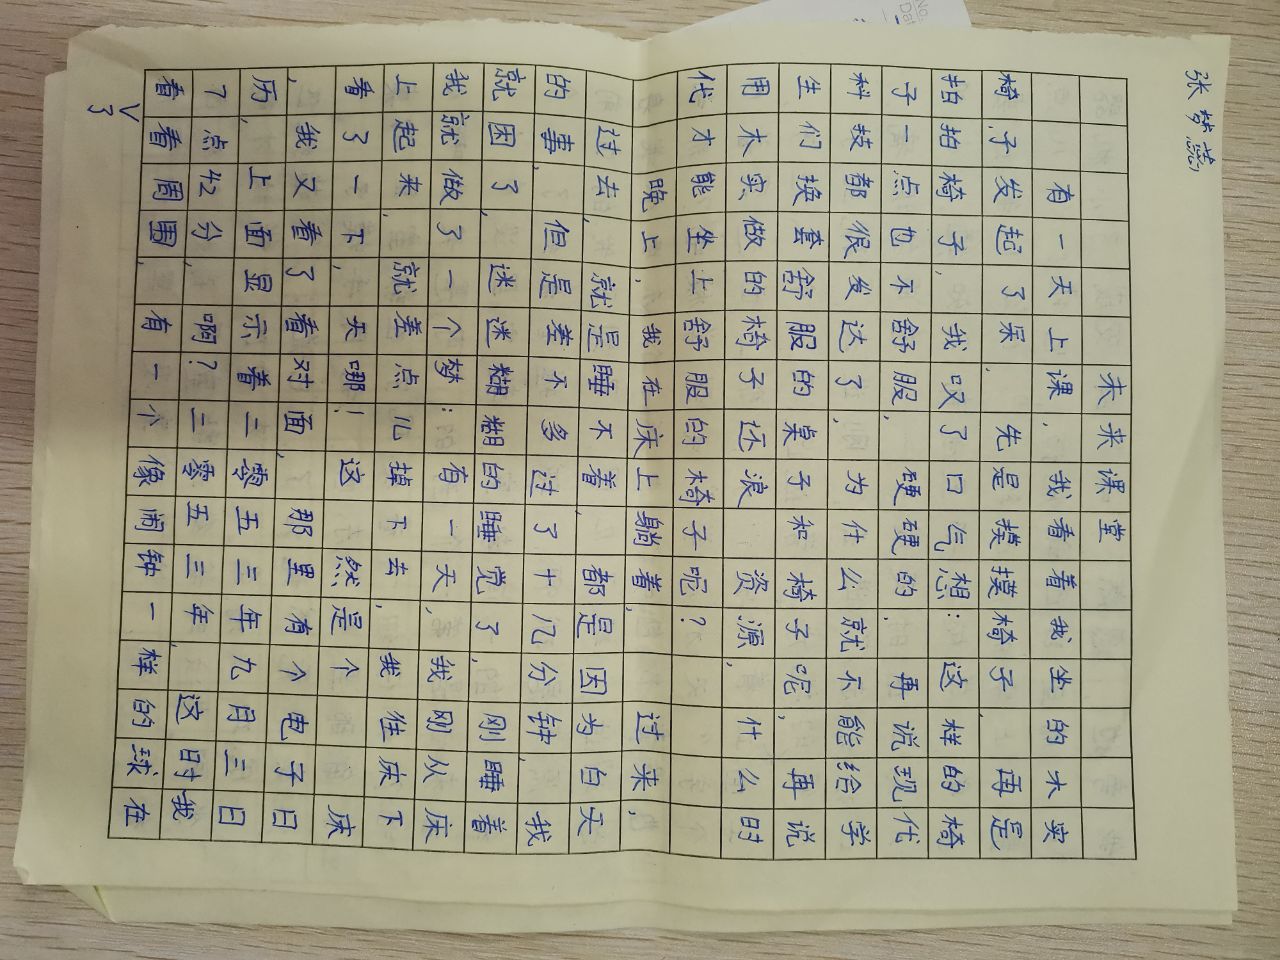 No.
Dat
张梦
未来课堂
有一天上课，我看着我坐的木实
椅子发起了呆，先是摸摸椅子，再是
拍拍椅子，我叹了口气想：这样的椅
子一点也不舒服，硬硬的！再说现代
科技都很发达了，为什么就不能给学
生们换套舒服的桌子和椅子呢，再说
用木实做的椅子还浪 资源，什么时
代才能坐上舒服的椅子呢？
晚上，我在床上躺着， 过来，
过去，就是睡不着，都是因为白天
的事，但是差不多过了十几分钟，我
就困了，迷迷糊糊的睡觉了，刚睡着
我就做了一个梦：有一天，我刚从床
上起来，就差点儿掉下去，我往床下
看了一下，天哪！这 然是个 床
，我又看了看对面，那里有个电子日
历，上面显示着二零五三年九月三日
7点42分，啊？二零五三年，这时我
看看周围，有一个像闹钟一样的球在
3